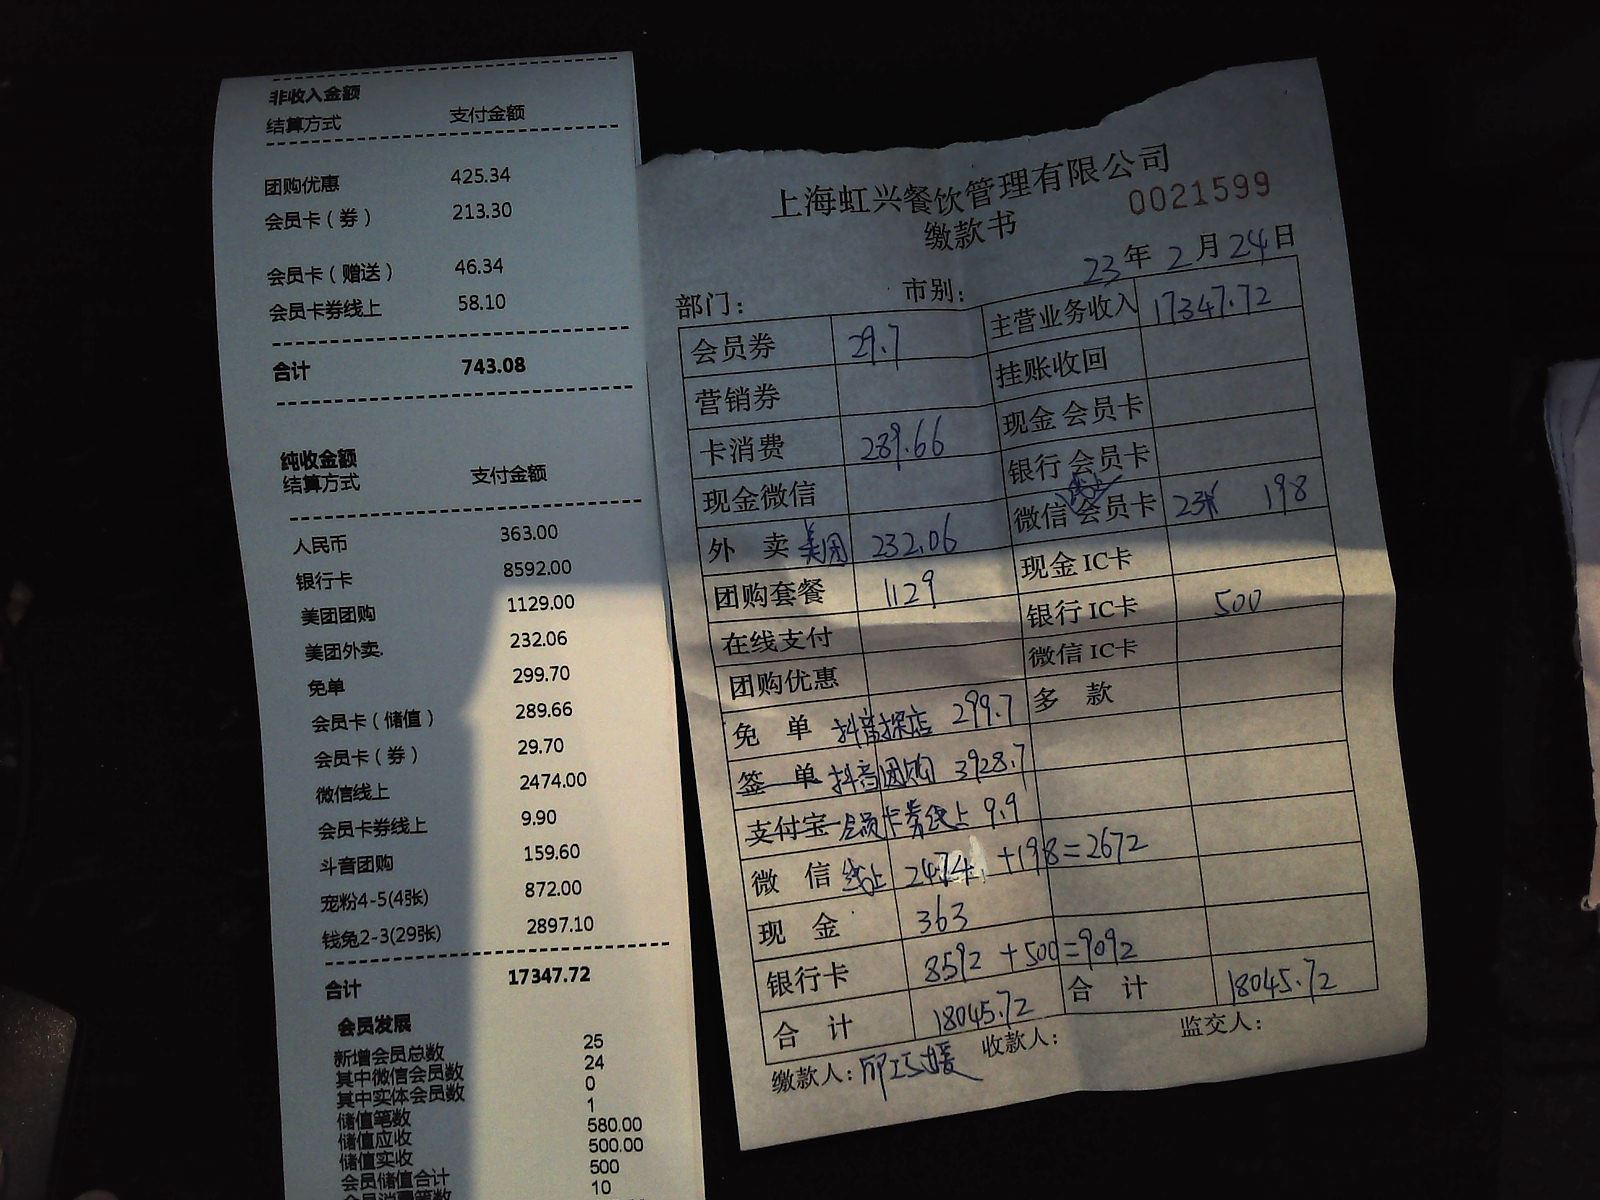 非收入金额
结算方式 支付金额
团购优惠 425.34
会员卡（券） 213.30
会员卡（赠送） 46.34
会员卡券线上 58.10
合计 743.08
纯收金额
结算方式 支付金额
人民币 363.00
银行卡 8592.00
美团团购 1129.00
美团外卖 232.06
免单 299.70
会员卡（储值） 289.66
会员卡（券） 29.70
微信线上 2474.00
会员卡券线上 9.90
斗音团购 159.60
宠粉4-5(4张) 872.00
钱兔2-3(29张) 2897.10
合计 17347.72
会员发展
新增会员总数 25
其中微信会员数 24
其中实体会员数 0
储值笔数 1
储值应收 580.00
储值实收 500.00
会员储值合计 500
会员消费笔数 10
上海虹兴餐饮管理有限公司
0021599
缴款书
23年2月24日
部门： 市别：
会员券 29.7 主营业务收入 17347.72
营销券 挂账收回
卡消费 289.66 现金 会员卡
现金微信 银行 会员卡
外 卖 美团 232.06 微信 会员卡 23张 198
团购套餐 1129 现金 IC卡
在线支付 银行 IC卡 500
团购优惠 微信 IC卡
免 单 抖音探店 299.7 多 款
签 单 抖音团购 3928.7
支付宝 会员卡券线上 9.9
微 信 线上 2474 +198=2672
现 金 363
银行卡 8592 +500=9092
合 计 18045.72 合 计 18045.72
缴款人： 收款人： 监交人：